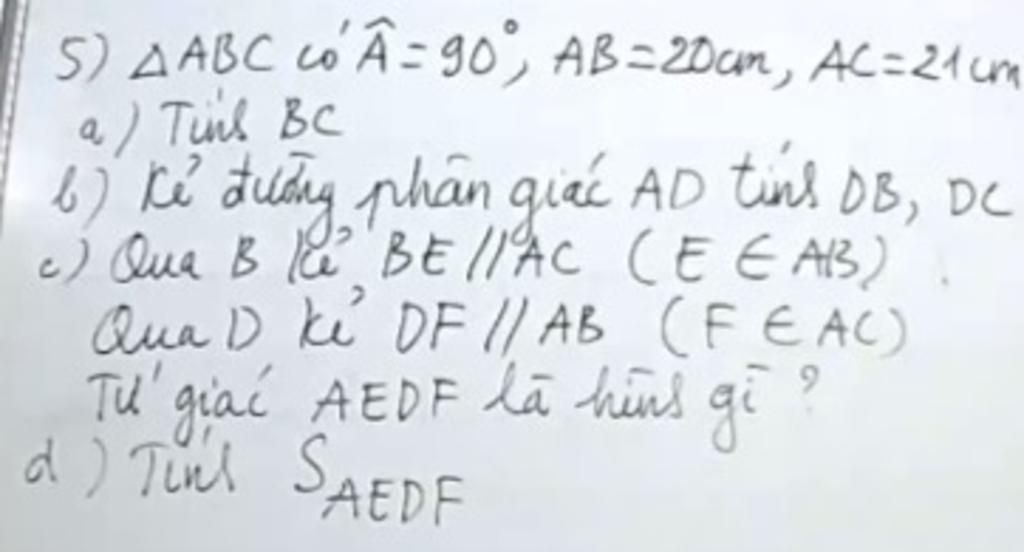 5) △ABC có Â = 90°, AB = 20cm, AC = 21cm
a) Tính BC
b) Kẻ đường phân giác AD tính DB, DC
c) Qua B kẻ BE // AC (E ∈ AB)
Qua D kẻ DF // AB (F ∈ AC)
Tứ giác AEDF là hình gì ?
d) Tính S_AEDF